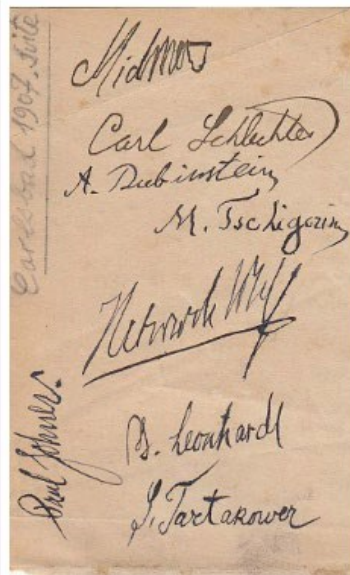 Carlsbad 1907.
Vidmar
Carl Schlechter
A. Rubinstein
M. Tschigorin
Heinrich Wolf
P. Leonhardt
S. Tartakower
Paul Johner.